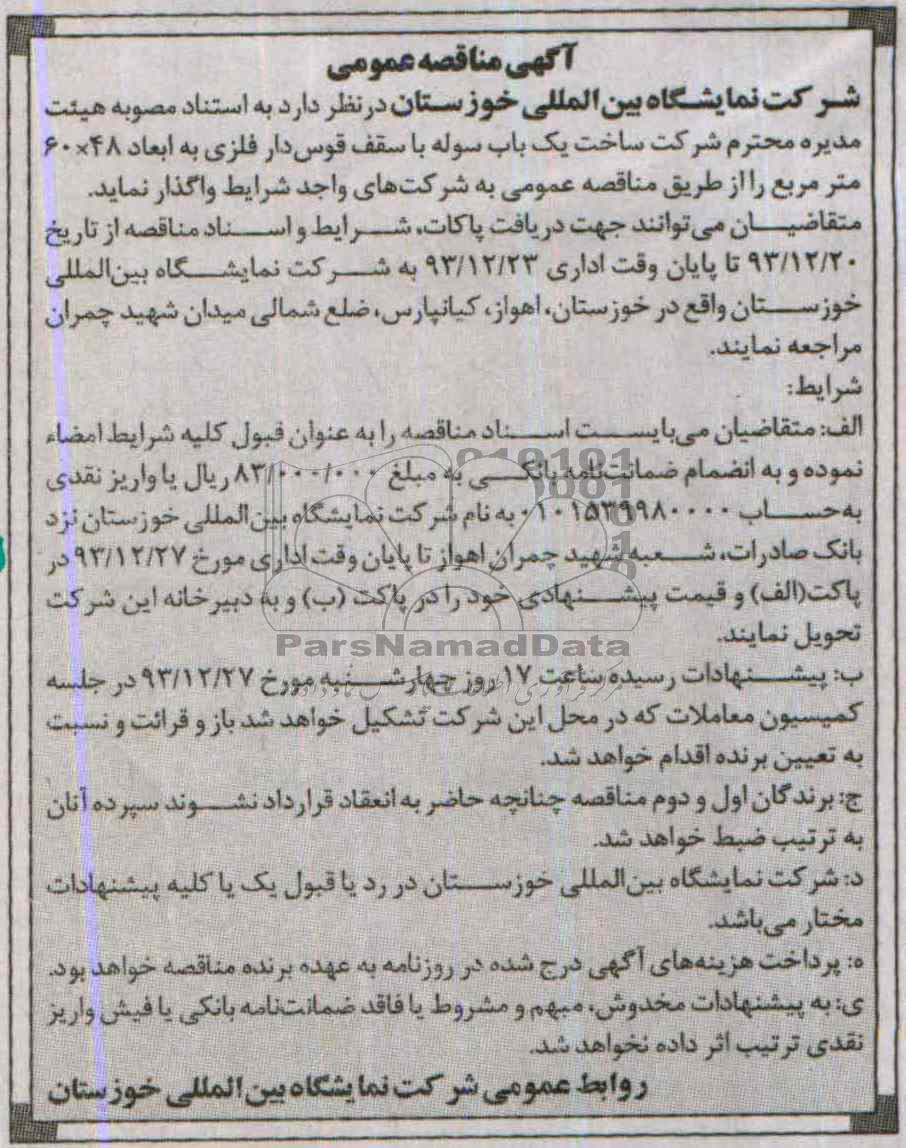 آگهی مناقصه عمومی
شرکت نمایشگاه بین المللی خوزستان در نظر دارد به استناد مصوبه هیئت
مدیره محترم شرکت ساخت یک باب سوله با سقف قوس‌دار فلزی به ابعاد ۴۸×۶۰
متر مربع را از طریق مناقصه عمومی به شرکت‌های واجد شرایط واگذار نماید.
متقاضیان می‌توانند جهت دریافت پاکات، شرایط و اسناد مناقصه از تاریخ
۹۳/۱۲/۲۰ تا پایان وقت اداری ۹۳/۱۲/۲۳ به شرکت نمایشگاه بین‌المللی
خوزستان واقع در خوزستان، اهواز، کیانپارس، ضلع شمالی میدان شهید چمران
مراجعه نمایند.
شرایط:
الف: متقاضیان می‌بایست اسناد مناقصه را به عنوان قبول کلیه شرایط امضاء
نموده و به انضمام ضمانت‌نامه بانکی به مبلغ ۸۳/۰۰۰/۰۰۰ ریال یا واریز نقدی
به‌حساب ۰۱۰۱۵۳۹۹۸۰۰۰۰ به نام شرکت نمایشگاه بین‌المللی خوزستان نزد
بانک صادرات، شعبه شهید چمران اهواز تا پایان وقت اداری مورخ ۹۳/۱۲/۲۷ در
پاکت(الف) و قیمت پیشنهادی خود را در پاکت (ب) و به دبیرخانه این شرکت
تحویل نمایند.
ParsNamadData
ب: پیشنهادات رسیده ساعت ۱۷ روز چهارشنبه مورخ ۹۳/۱۲/۲۷ در جلسه
کمیسیون معاملات که در محل این شرکت تشکیل خواهد شد باز و قرائت و نسبت
به تعیین برنده اقدام خواهد شد.
ج: برندگان اول و دوم مناقصه چنانچه حاضر به انعقاد قرارداد نشوند سپرده آنان
به ترتیب ضبط خواهد شد.
د: شرکت نمایشگاه بین‌المللی خوزستان در رد یا قبول یک یا کلیه پیشنهادات
مختار می‌باشد.
ه: پرداخت هزینه‌های آگهی درج شده در روزنامه به عهده برنده مناقصه خواهد بود.
ی: به پیشنهادات مخدوش، مبهم و مشروط یا فاقد ضمانت‌نامه بانکی یا فیش واریز
نقدی ترتیب اثر داده نخواهد شد.
روابط عمومی شرکت نمایشگاه بین المللی خوزستان